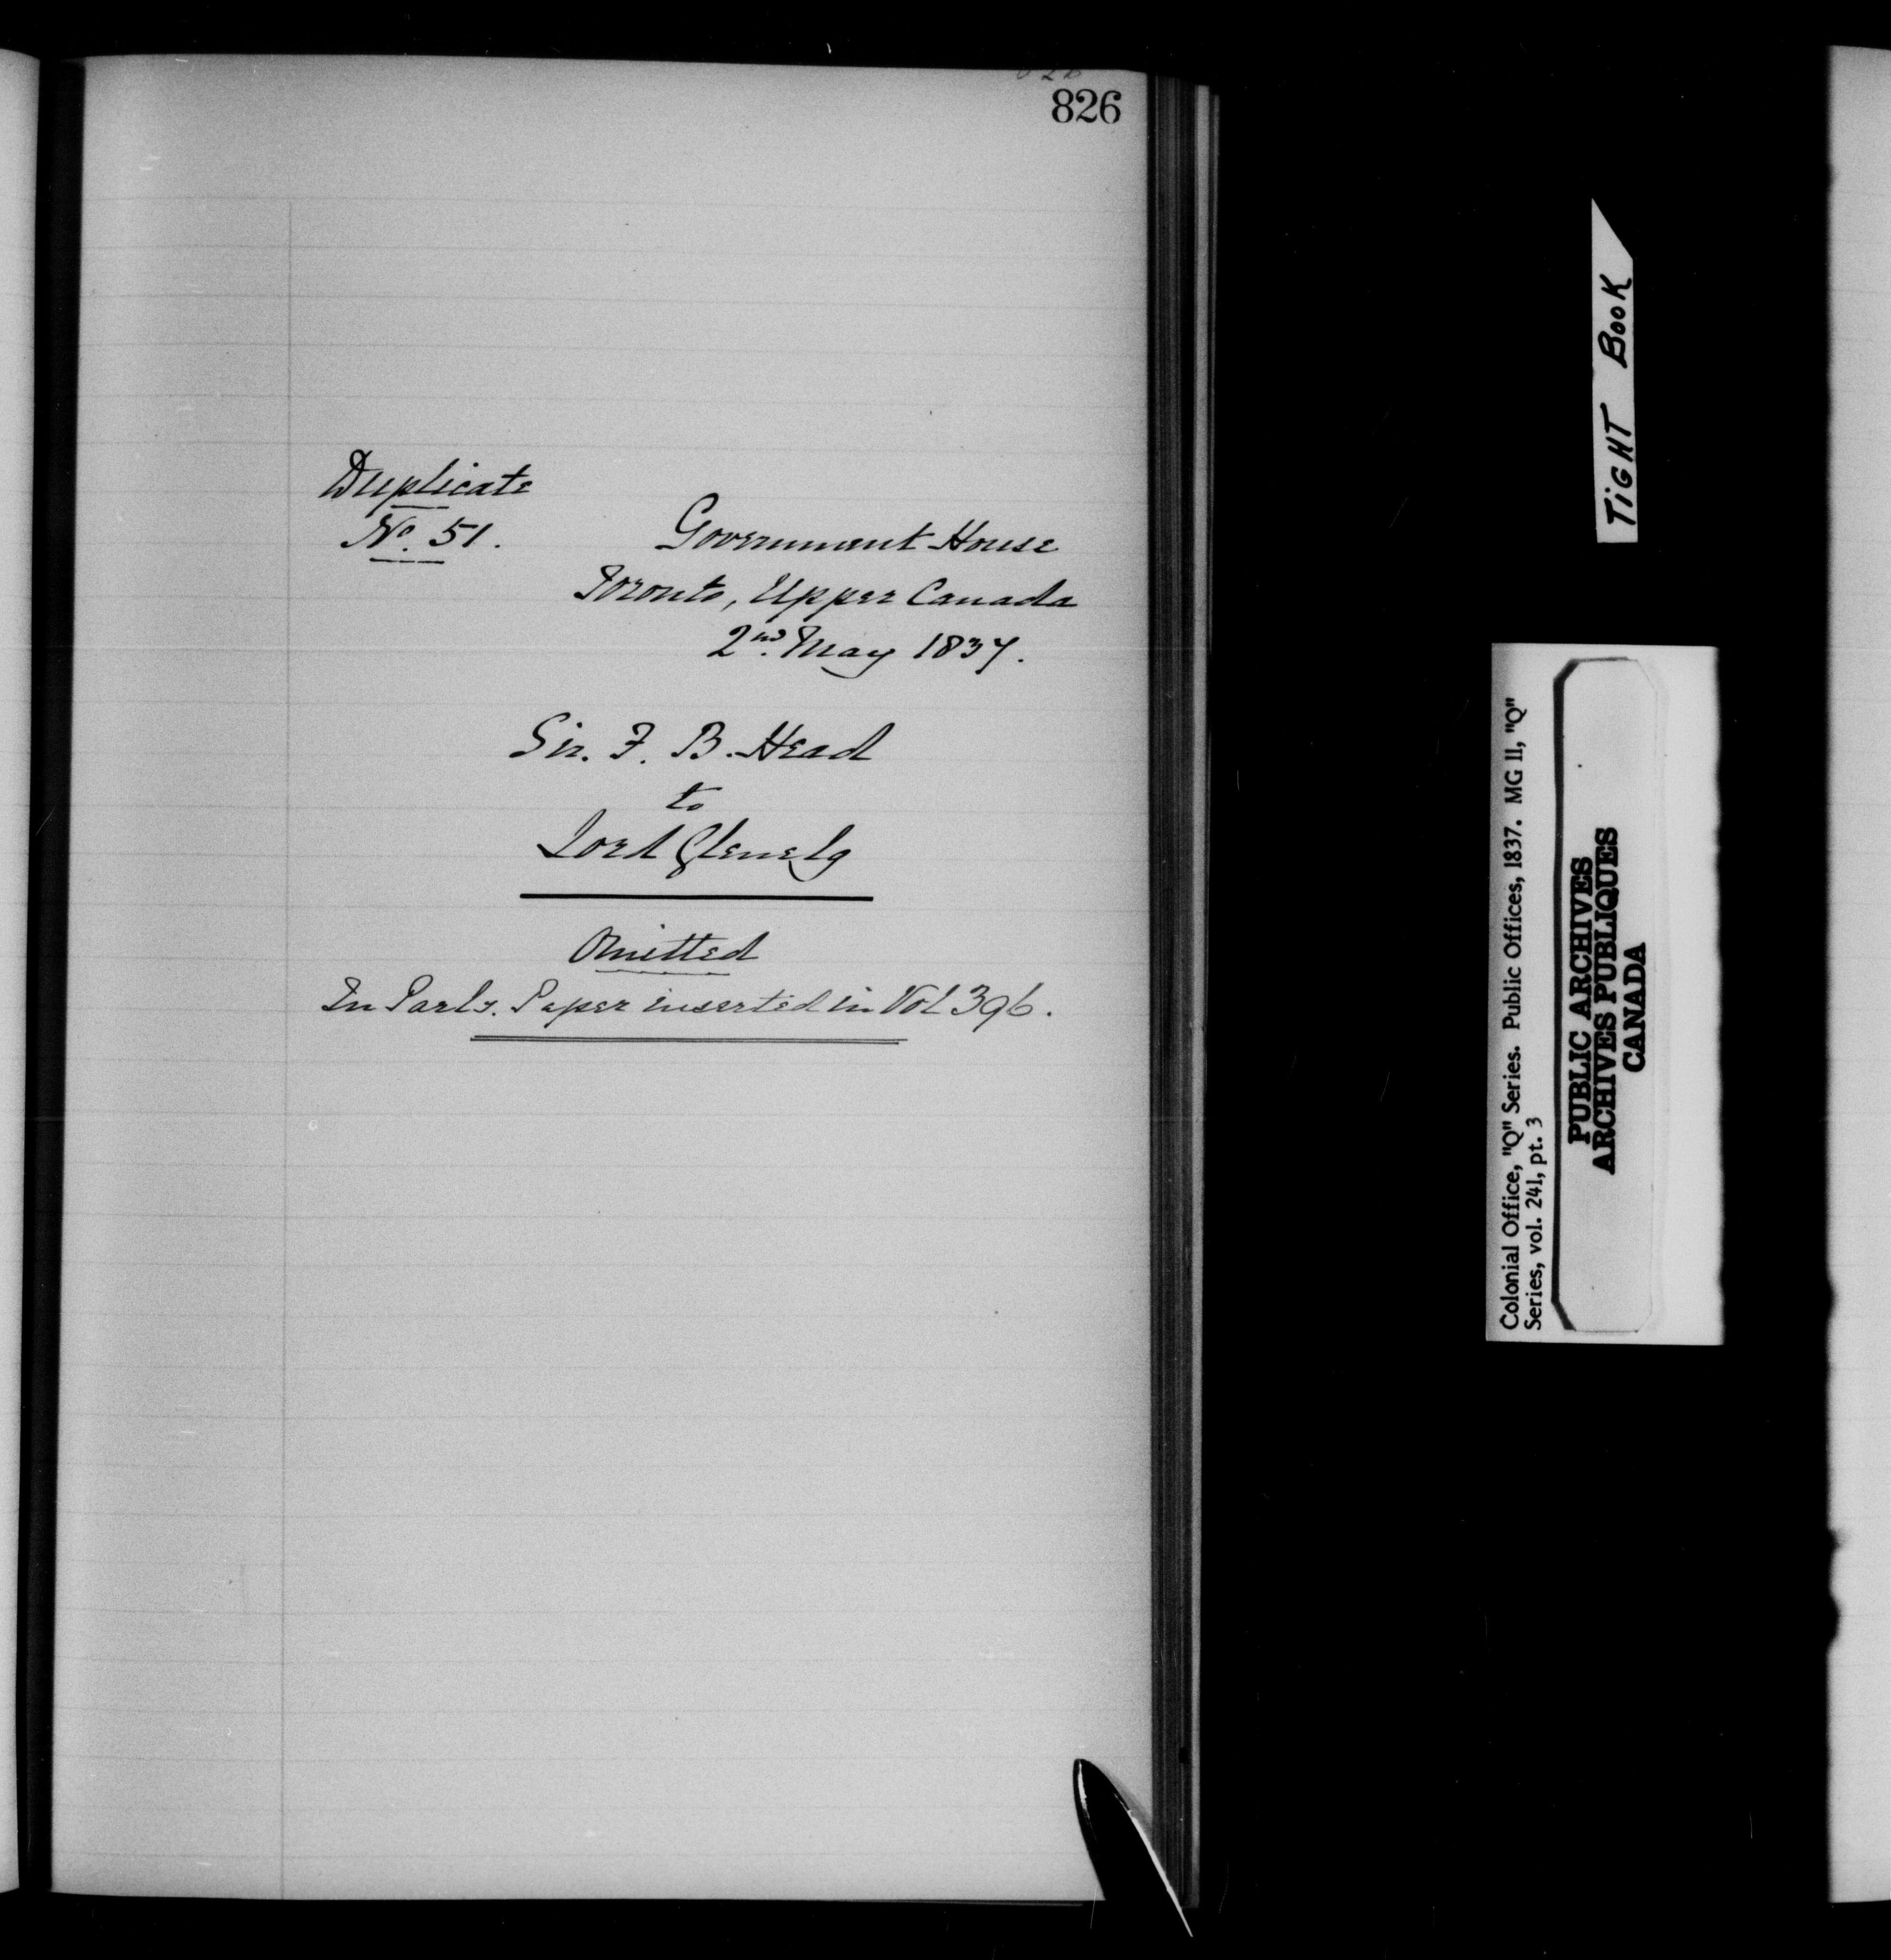 826
Duplicate
No. 51.
Government House
Toronto, Upper Canada
2nd. May 1837.
Sir. F. B. Head
to
Lord Glenelg
Omitted
In Parly. Paper inserted in Vol 396.
TIGHT BOOK
Colonial Office, "Q" Series. Public Offices, 1837. MG 11, "Q"
Series, vol. 241, pt. 3
PUBLIC ARCHIVES
ARCHIVES PUBLIQUES
CANADA